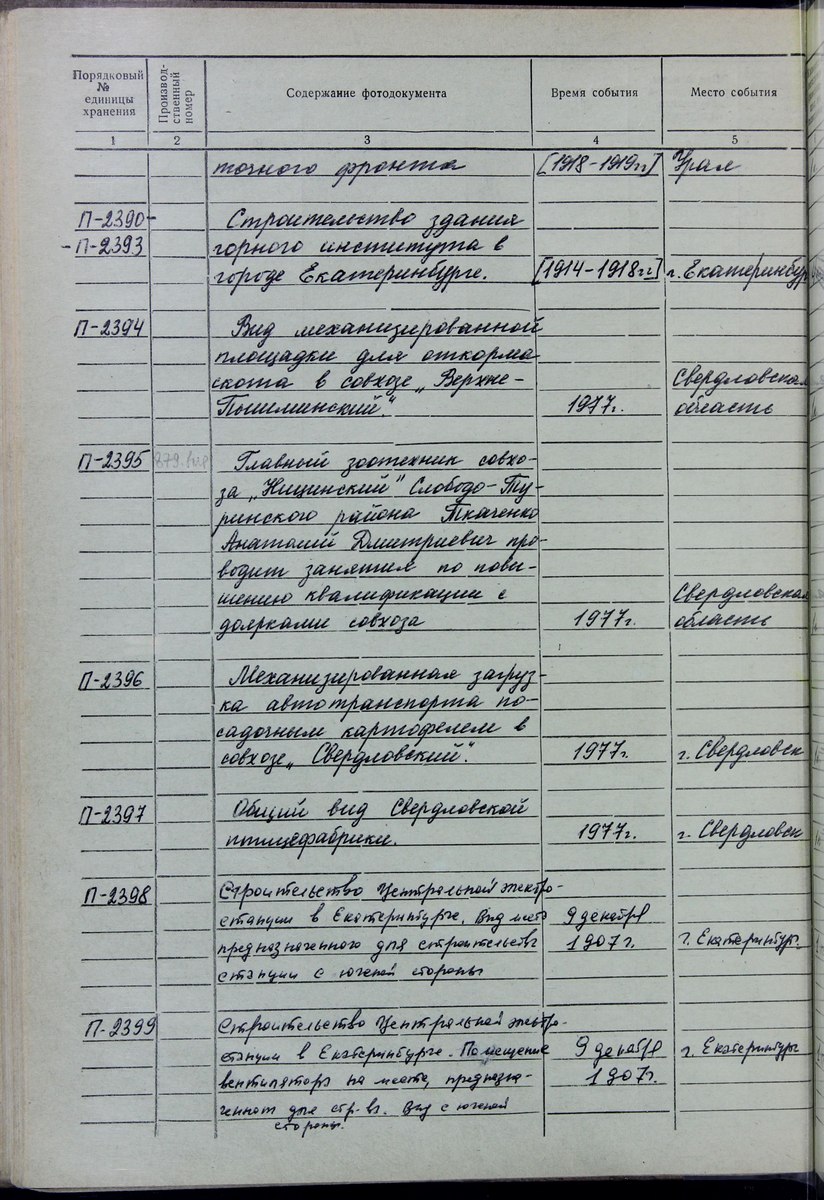 Порядковый № единицы хранения
Производ-ственный номер
Содержание фотодокумента
Время события
Место события
1 2 3 4 5
точного фронта [1918-1919гг] Урал
П-2390- Строительство здания
-П-2393 горного института в
городе Екатеринбурге. [1914-1918гг] г. Екатеринбур
П-2394 Вид механизированной
площадки для откорма
скота в совхозе „Верхне- Свердловская
Пышминский". 1977г. область
П-2395 Главный зоотехник совхо-
за „Ницинский" Слободо-Ту-
ринского района Ткаченко
Анатолий Дмитриевич про-
водит занятия по повы-
шению квалификации с Свердловская
доярками совхоза 1977г. область
П-2396 Механизированная загруз-
ка автотранспорта по-
садочным картофелем в
совхозе „Свердловский". 1977г. г. Свердловск
П-2397 Общий вид Свердловской
птицефабрики. 1977г. г. Свердловск
П-2398 Строительство Центральной электро-
станции в Екатеринбурге. Вид места 9 декабря
предназначенного для строительства 1907г. г. Екатеринбург
станции с южной стороны
П-2399 Строительство Центральной электро-
станции в Екатеринбурге. Помещение 9 декабря г. Екатеринбург
вентилятора на месте, предназна- 1907г.
ченном для стр-ва. Вид с южной
стороны.